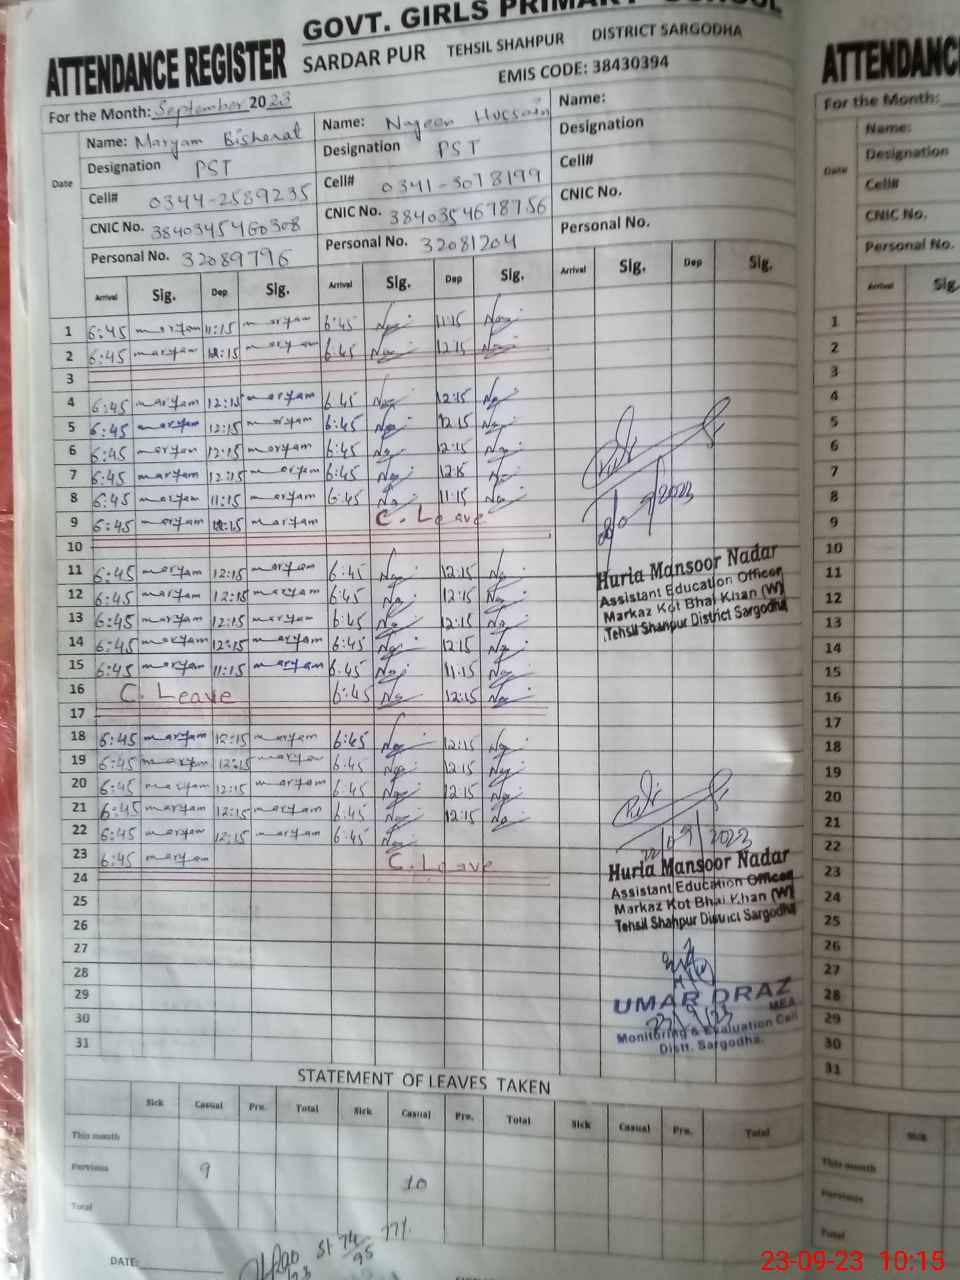 GOVT. GIRLS PRIMARY SCHOOL
ATTENDANCE REGISTER SARDAR PUR TEHSIL SHAHPUR DISTRICT SARGODHA
EMIS CODE: 38430394
For the Month: September 2023
Date
Name: Maryam Bisharat Name: Nageen Hussain Name:
Designation PST Designation PST Designation
Cell# 0344-2589235 Cell# 0341-3078199 Cell#
CNIC No. 3840345460308 CNIC No. 3840354678756 CNIC No.
Personal No. 32089796 Personal No. 32081204 Personal No.
Arrival Sig. Dep Sig. Arrival Sig. Dep Sig. Arrival Sig. Dep Sig.
1 6:45 maryam 11:15 maryam 6:45 11:15
2 6:45 maryam 12:15 maryam 6:45 12:15
3
4 6:45 maryam 12:15 maryam 6:45 12:15
5 6:45 maryam 12:15 maryam 6:45 12:15
6 6:45 maryam 12:15 maryam 6:45 12:15
7 6:45 maryam 12:15 maryam 6:45 12:15
8 6:45 maryam 11:15 maryam 6:45 11:15
9 6:45 maryam 12:15 maryam C. Leave
10
11 6:45 maryam 12:15 maryam 6:45 12:15
12 6:45 maryam 12:15 maryam 6:45 12:15
13 6:45 maryam 12:15 maryam 6:45 12:15
14 6:45 maryam 12:15 maryam 6:45 12:15
15 6:45 maryam 11:15 maryam 6:45 11:15
16 C. Leave 6:45 12:15
17
18 6:45 maryam 12:15 maryam 6:45 12:15
19 6:45 maryam 12:15 maryam 6:45 12:15
20 6:45 maryam 12:15 maryam 6:45 12:15
21 6:45 maryam 12:15 maryam 6:45 12:15
22 6:45 maryam 12:15 maryam 6:45
23 6:45 maryam C. Leave
24
25
26
27
28
29
30
31
Huria Mansoor Nadar
Assistant Education Officer
Markaz Kot Bhai Khan (W)
Tehsil Shahpur District Sargodha
22/09/2023
Huria Mansoor Nadar
Assistant Education Officer
Markaz Kot Bhai Khan (W)
Tehsil Shahpur District Sargodha
UMAR DRAZ
MEA
23/9/23
Monitoring & Evaluation Cell
Distt. Sargodha.
STATEMENT OF LEAVES TAKEN
Sick Casual Pre. Total Sick Casual Pre. Total Sick Casual Pre. Total
This month
Pervious 9 10
Total
DATE:
St 74/95 77%
ATTENDANC
For the Month:
Date
Name:
Designation
Cell#
CNIC No.
Personal No.
Arrival Sig.
1
2
3
4
5
6
7
8
9
10
11
12
13
14
15
16
17
18
19
20
21
22
23
24
25
26
27
28
29
30
31
Sick
This month
Pervious
Total
23-09-23 10:15